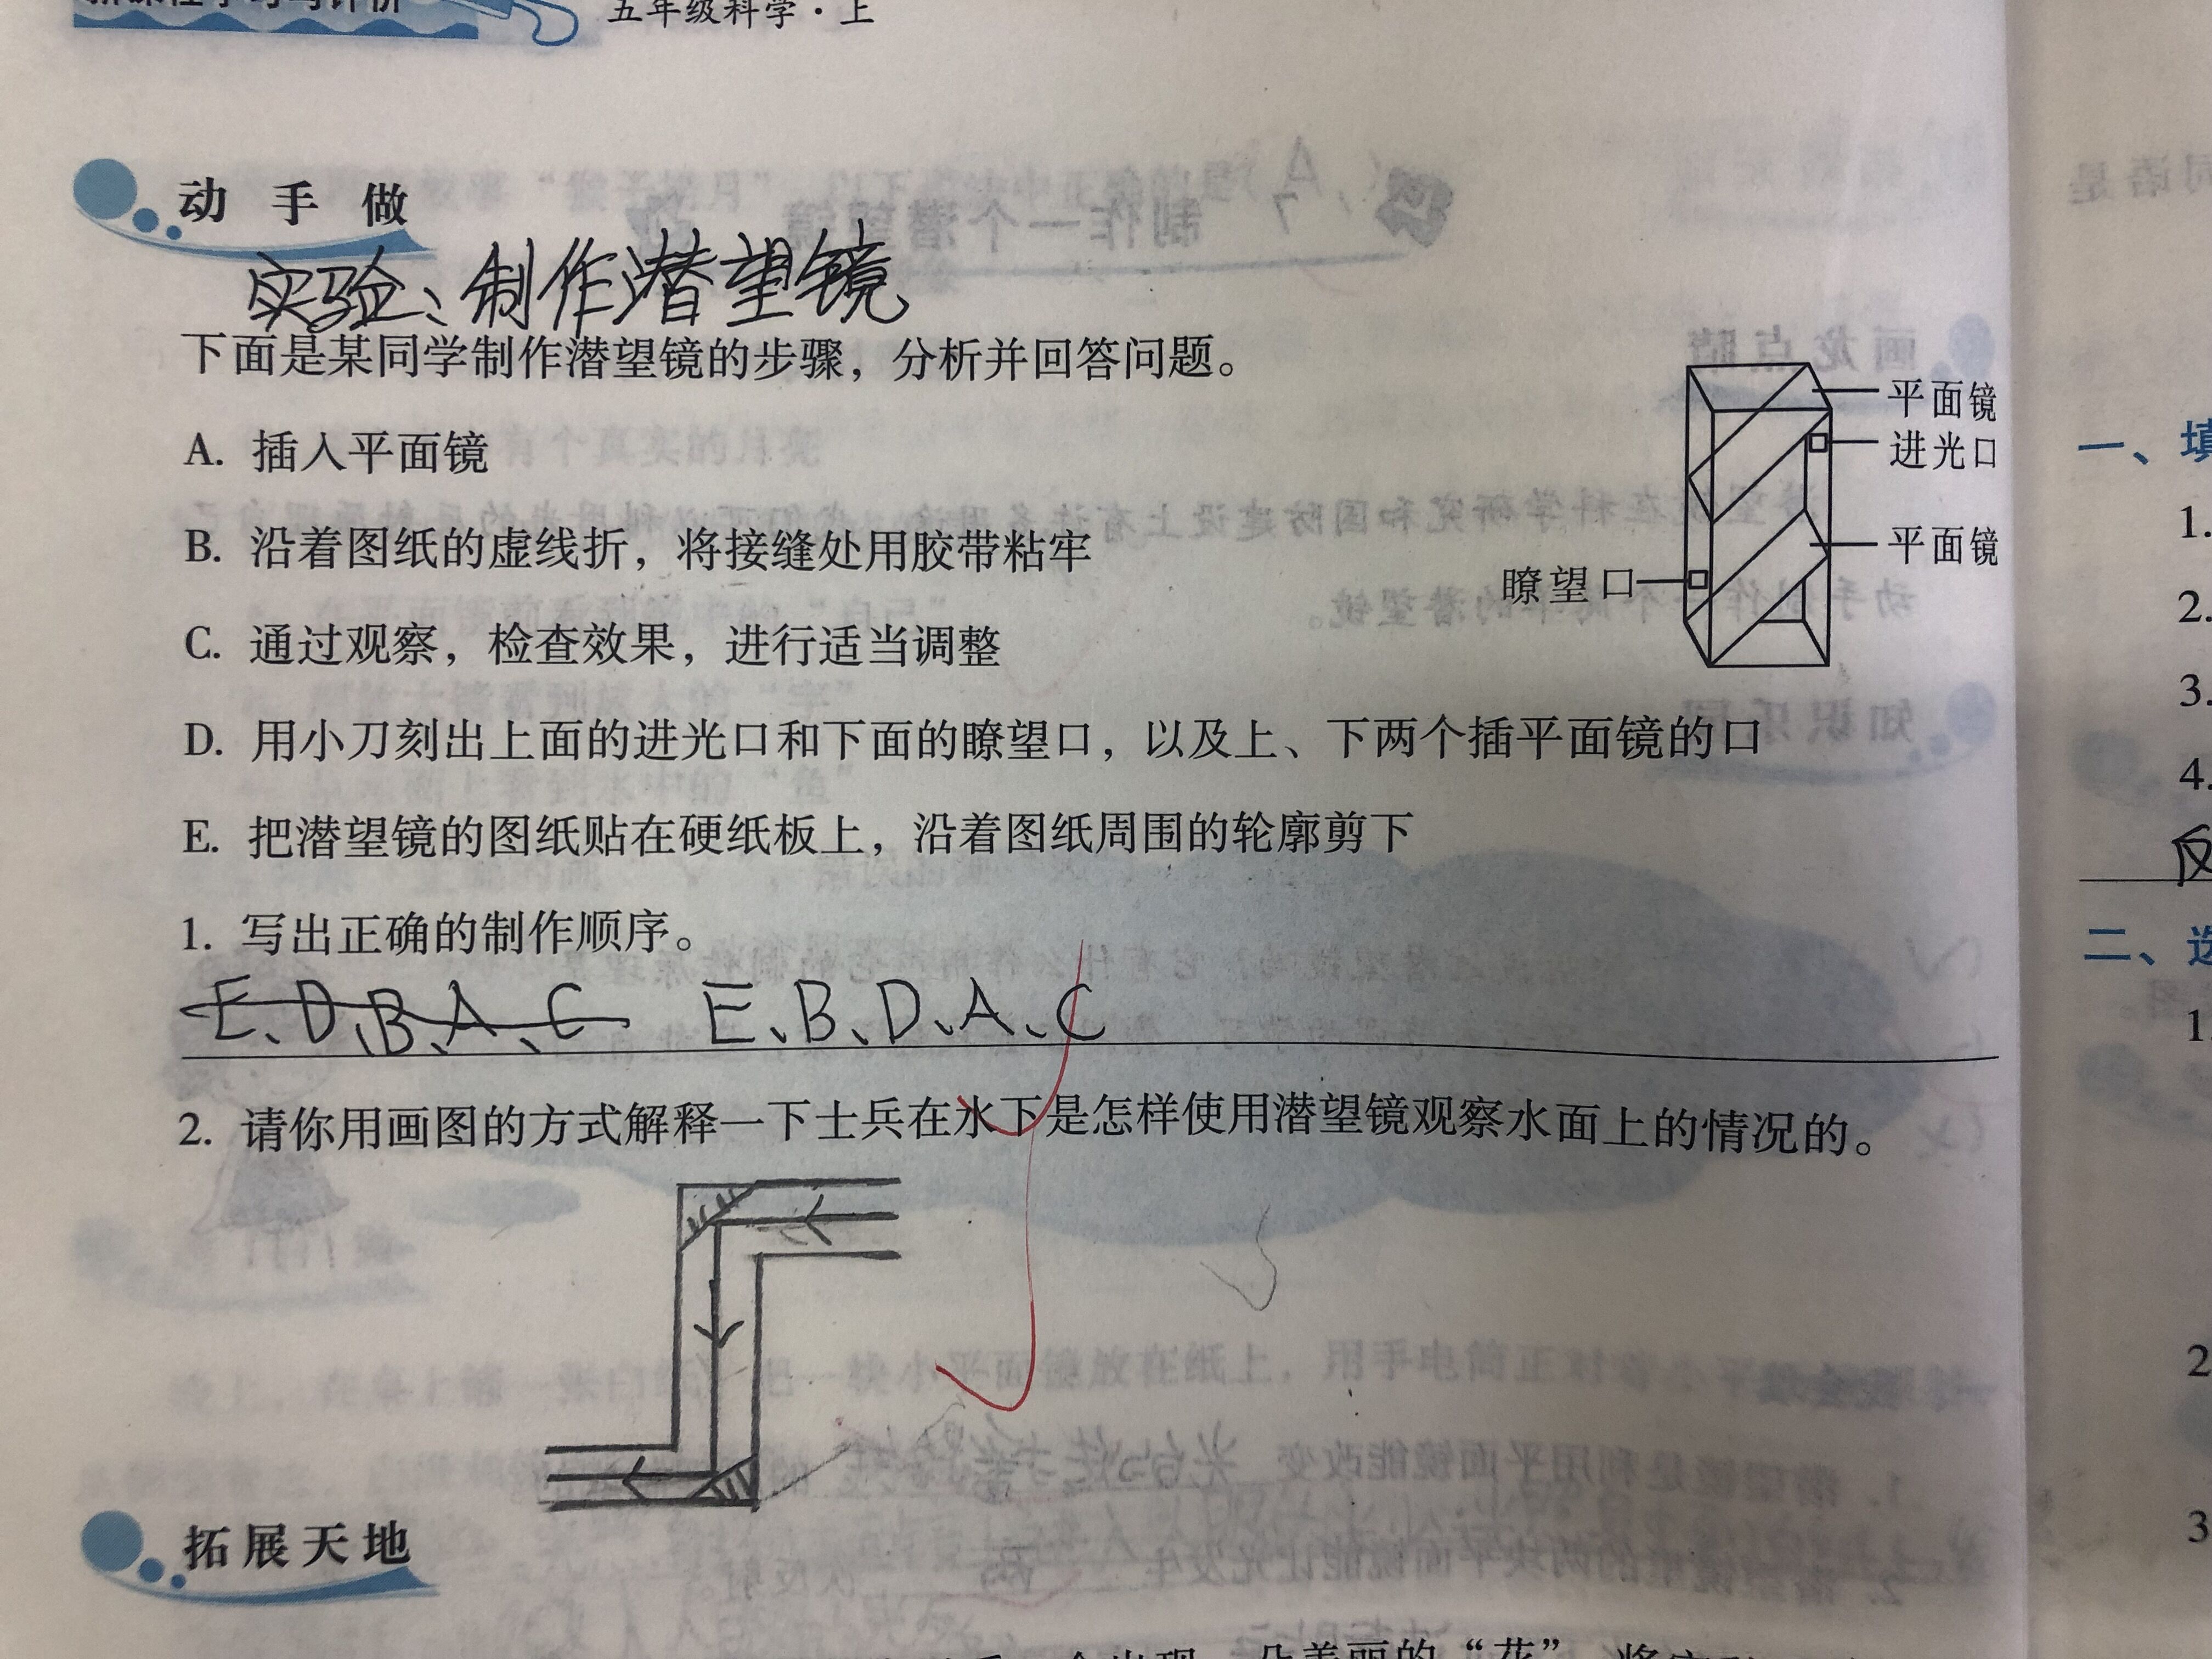 五年级科学·上
动手做
实验、制作潜望镜
下面是某同学制作潜望镜的步骤，分析并回答问题。
A. 插入平面镜
B. 沿着图纸的虚线折，将接缝处用胶带粘牢
C. 通过观察，检查效果，进行适当调整
D. 用小刀刻出上面的进光口和下面的瞭望口，以及上、下两个插平面镜的口
E. 把潜望镜的图纸贴在硬纸板上，沿着图纸周围的轮廓剪下
平面镜
进光口
平面镜
瞭望口
1. 写出正确的制作顺序。
E、D、B、A、C E、B、D、A、C
2. 请你用画图的方式解释一下士兵在水下是怎样使用潜望镜观察水面上的情况的。
拓展天地
一、填
1.
2.
3.
4.
反
二、选
1.
2
3